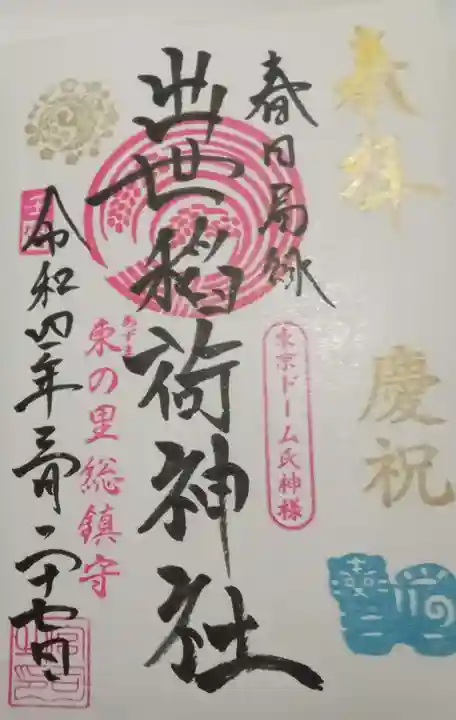 奉拝
慶祝
春日局縁
東京ドーム氏神様
出世稲荷神社
あずま
東の里総鎮守
令和四年三月二十七日